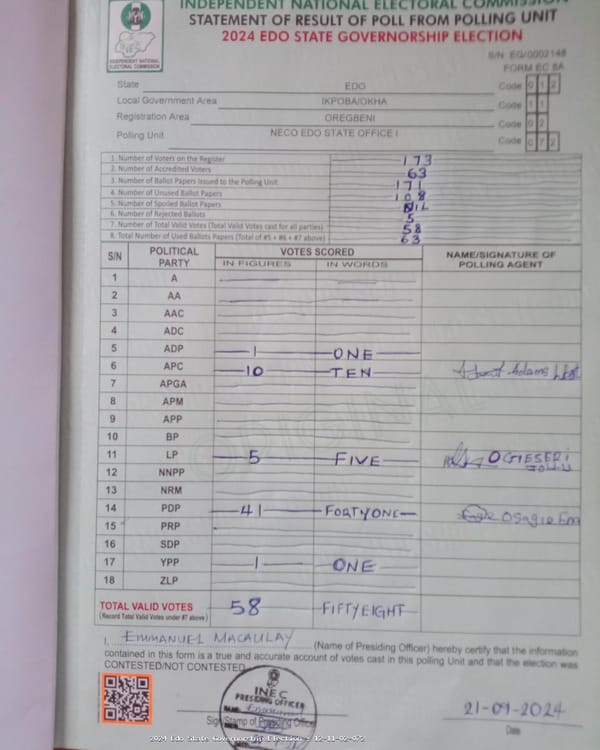 INDEPENDENT NATIONAL ELECTORAL COMMISSION
STATEMENT OF RESULT OF POLL FROM POLLING UNIT
2024 EDO STATE GOVERNORSHIP ELECTION
INEC
INDEPENDENT NATIONAL
ELECTORAL COMMISSION
S/N: EG/0002148
FORM EC 8A
State EDO Code 0 1 2
Local Government Area IKPOBA/OKHA Code 1 1
Registration Area OREGBENI Code 0 2
Polling Unit NECO EDO STATE OFFICE I Code 0 7 2
1. Number of Voters on the Register 173
2. Number of Accredited Voters 63
3. Number of Ballot Papers Issued to the Polling Unit 171
4. Number of Unused Ballot Papers 108
5. Number of Spoiled Ballot Papers NIL
6. Number of Rejected Ballots 5
7. Number of Total Valid Votes (Total Valid Votes cast for all parties) 58
8. Total Number of Used Ballots Papers (Total of #5 + #6 + #7 above) 63
S/N POLITICAL PARTY VOTES SCORED NAME/SIGNATURE OF POLLING AGENT
IN FIGURES IN WORDS
1 A
2 AA
3 AAC
4 ADC
5 ADP 1 ONE
6 APC 10 TEN Adams
7 APGA
8 APM
9 APP
10 BP
11 LP 5 FIVE OGIESERI
12 NNPP
13 NRM
14 PDP 41 FORTYONE Osagie Em
15 PRP
16 SDP
17 YPP 1 ONE
18 ZLP
TOTAL VALID VOTES 58 FIFTYEIGHT
(Record Total Valid Votes under #7 above)
I, EMMANUEL MACAULAY (Name of Presiding Officer) hereby certify that the information
contained in this form is a true and accurate account of votes cast in this polling Unit and that the election was
CONTESTED/NOT CONTESTED
INEC
PRESIDING OFFICER
Sign/Stamp of Presiding Officer
21-09-2024
Date
2024 Edo State Governorship Election - 12-11-02-072